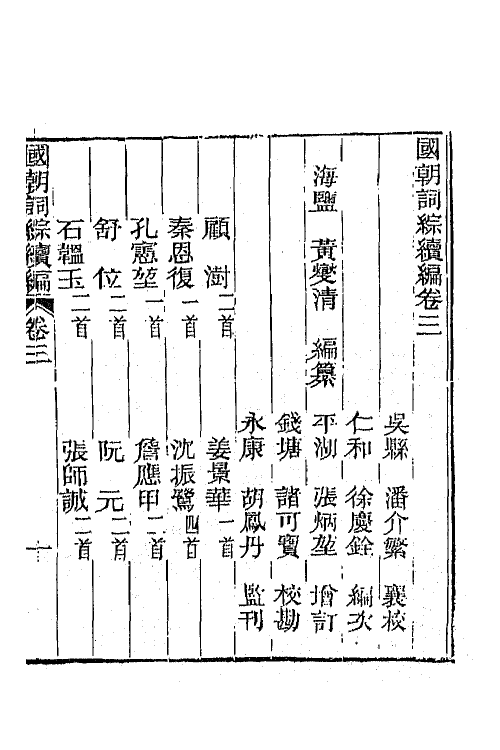 國朝詞綜續編卷三
吳縣 潘介繁 襄校
仁和 徐慶銓 編次
海鹽 黃燮清 編纂
平湖 張炳堃 增訂
錢塘 諸可寶 校勘
永康 胡鳳丹 監刊
顧澍二首
姜景華一首
秦恩復一首
沈振鷺四首
孔憲堃一首
詹應甲二首
舒位二首
阮元二首
石韞玉二首
張師誠二首
國朝詞綜續編 卷三 一